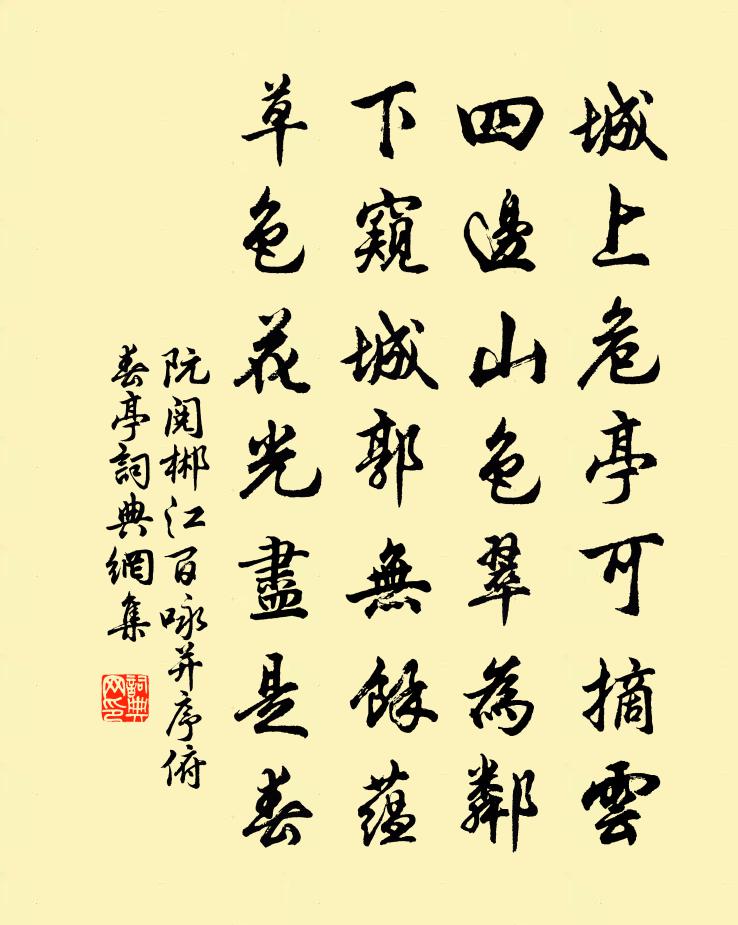 城上危亭可摘雲
四邊山色翠為鄰
下窺城郭無餘蘊
草色花光盡是春
阮閱郴江百咏并序俯
春亭詞典網集
詞典
网印